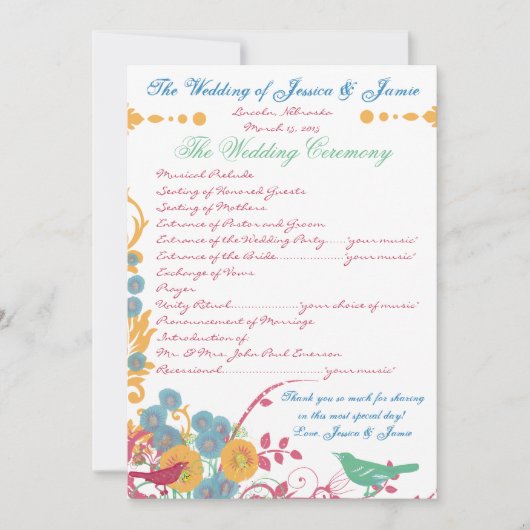 The Wedding of Jessica & Jamie
Lincoln, Nebraska
March 15, 2015
The Wedding Ceremony
Musical Prelude
Seating of Honored Guests
Seating of Mothers
Entrance of Pastor and Groom
Entrance of the Wedding Party......"your music"
Entrance of the Bride......................"your music"
Exchange of Vows
Prayer
Unity Ritual......................"your choice of music"
Pronouncement of Marriage
Introduction of:
Mr. & Mrs. John Paul Emerson
Recessional........................"your music"
Thank you so much for sharing
in this most special day!
Love, Jessica & Jamie